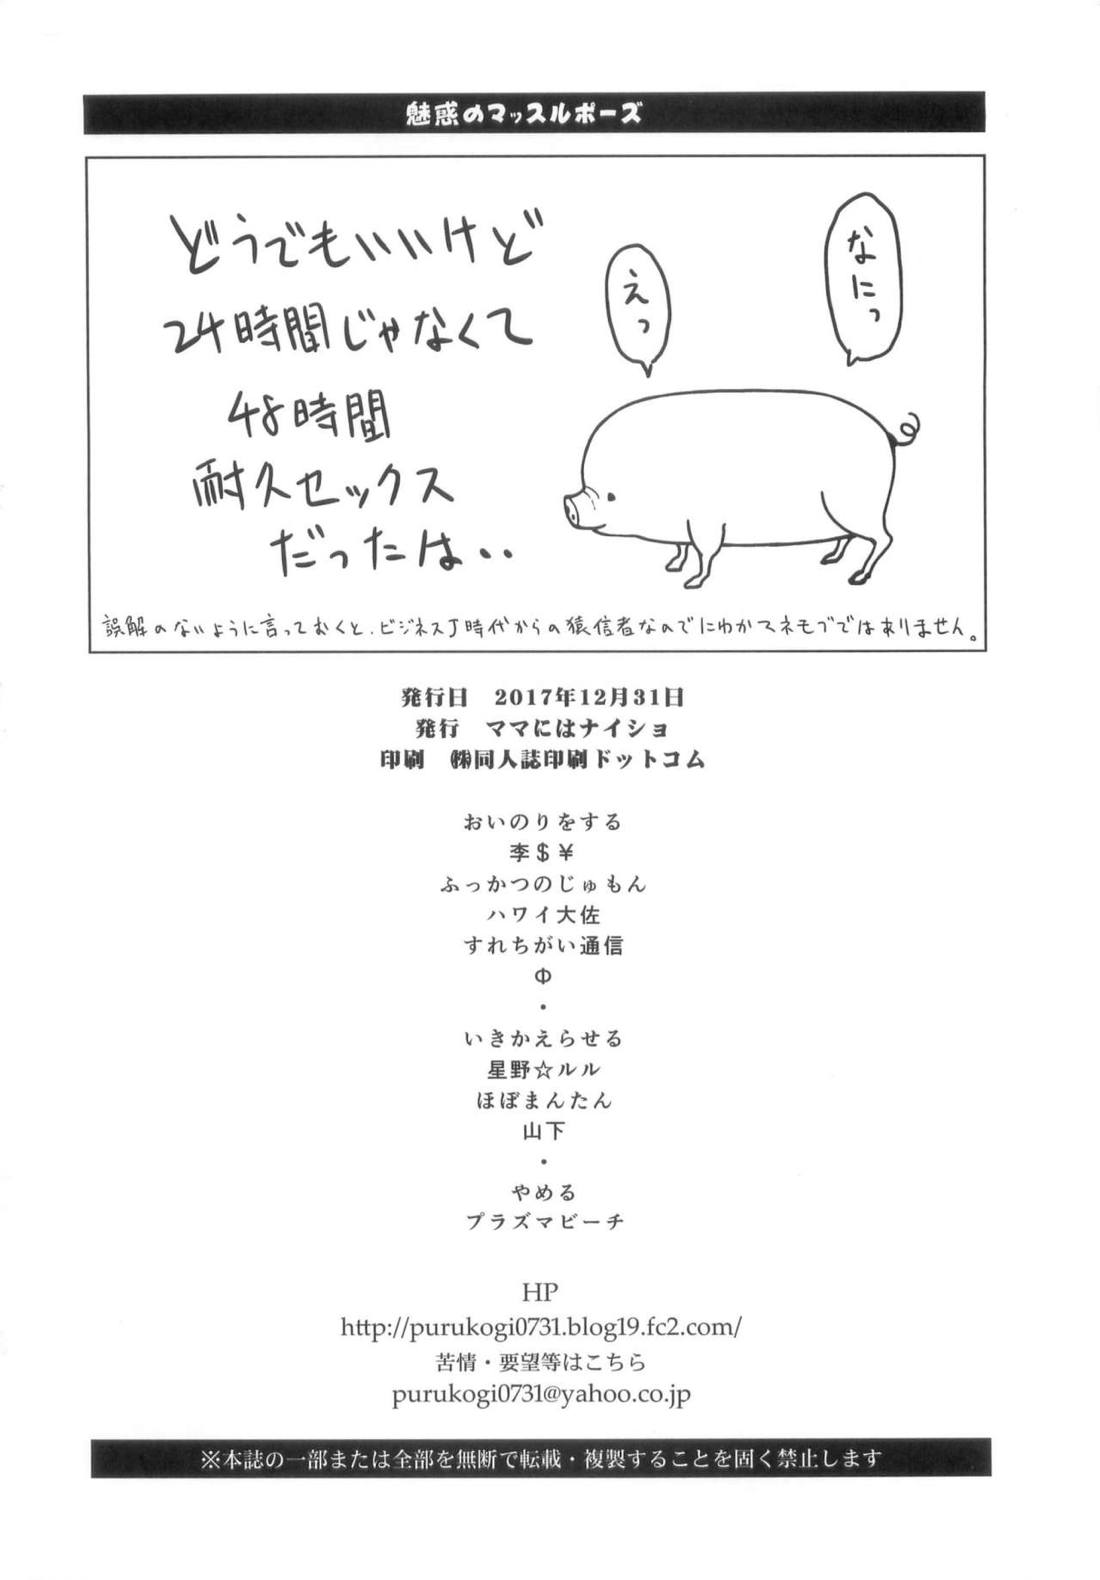 魅惑のマッスルポーズ
どうでもいいけど
24時間じゃなくて
48時間
耐久セックス
だったは・・
えっ
なにっ
誤解のないように言っておくと、ビジネスJ時代からの猿信者なのでにわかスネモブではありません。
発行日　2017年12月31日
発行　ママにはナイショ
印刷　㈱同人誌印刷ドットコム
おいのりをする
李＄￥
ふっかつのじゅもん
ハワイ大佐
すれちがい通信
Φ
・
いきかえらせる
星野☆ルル
ほぼまんたん
山下
・
やめる
プラズマビーチ
HP
http://purukogi0731.blog19.fc2.com/
苦情・要望等はこちら
purukogi0731@yahoo.co.jp
※本誌の一部または全部を無断で転載・複製することを固く禁止します